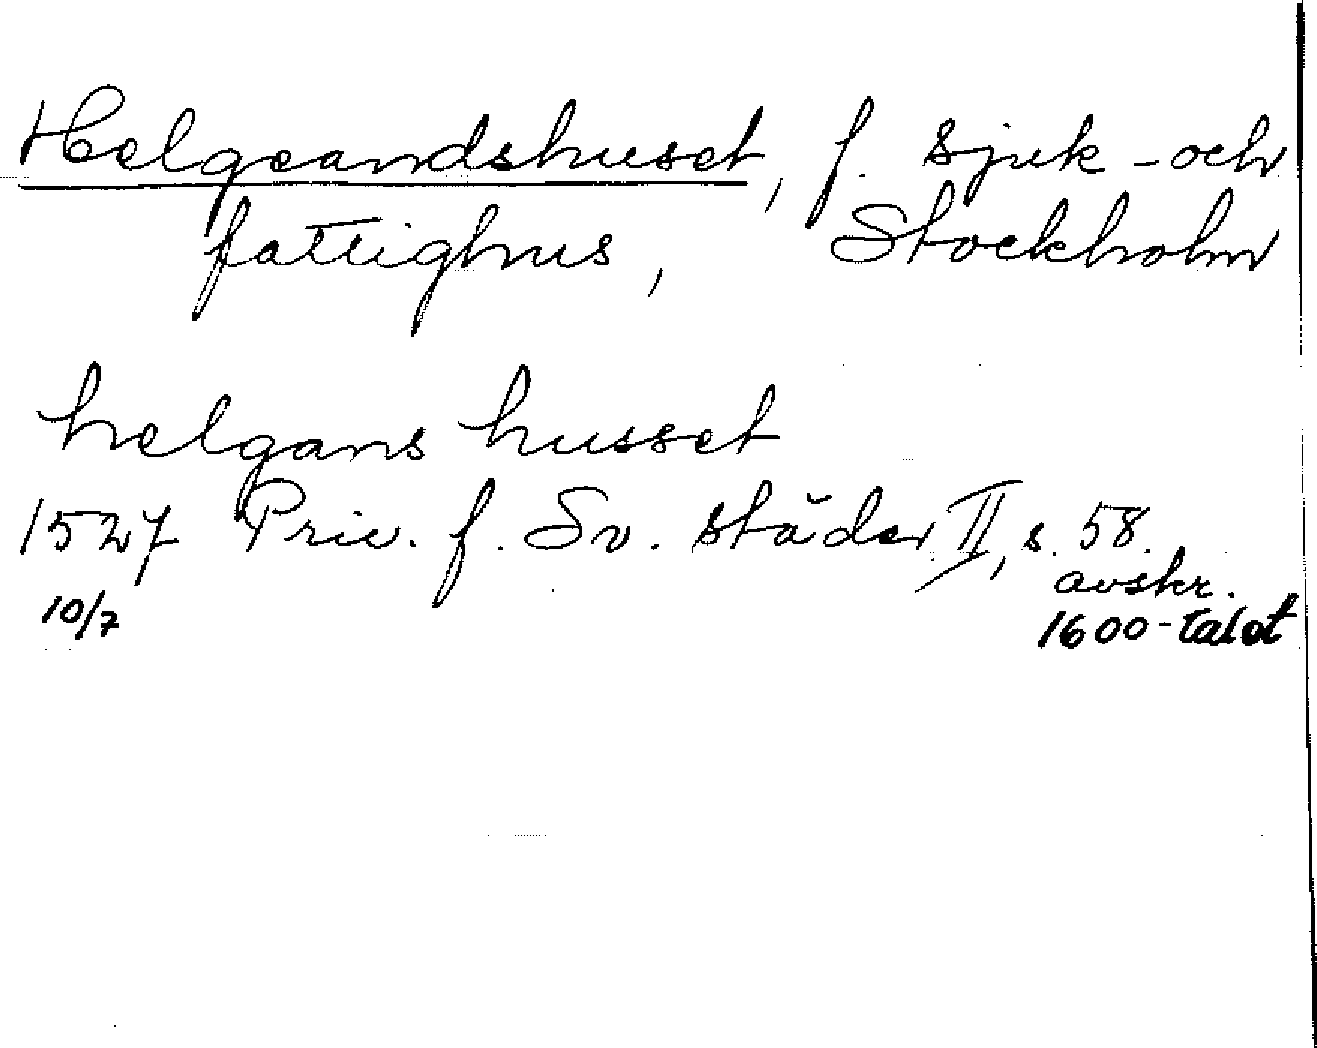 Helgeandshuset, f. sjuk- och
fattighus, Stockholm
helgans husset
1527 Priv. f. Sv. städer II, s. 58.
avskr.
10/7 1600-talet